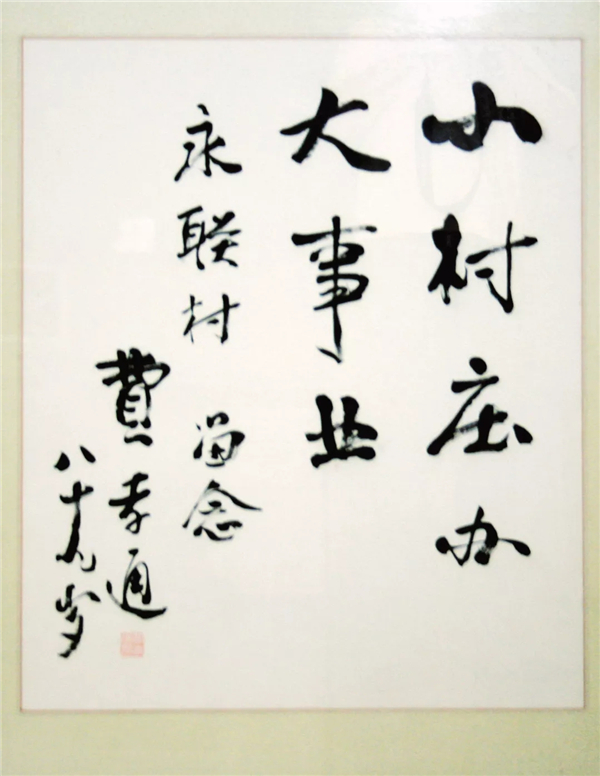 小村庄办
大事业
永联村 留念
費孝通
八十九岁